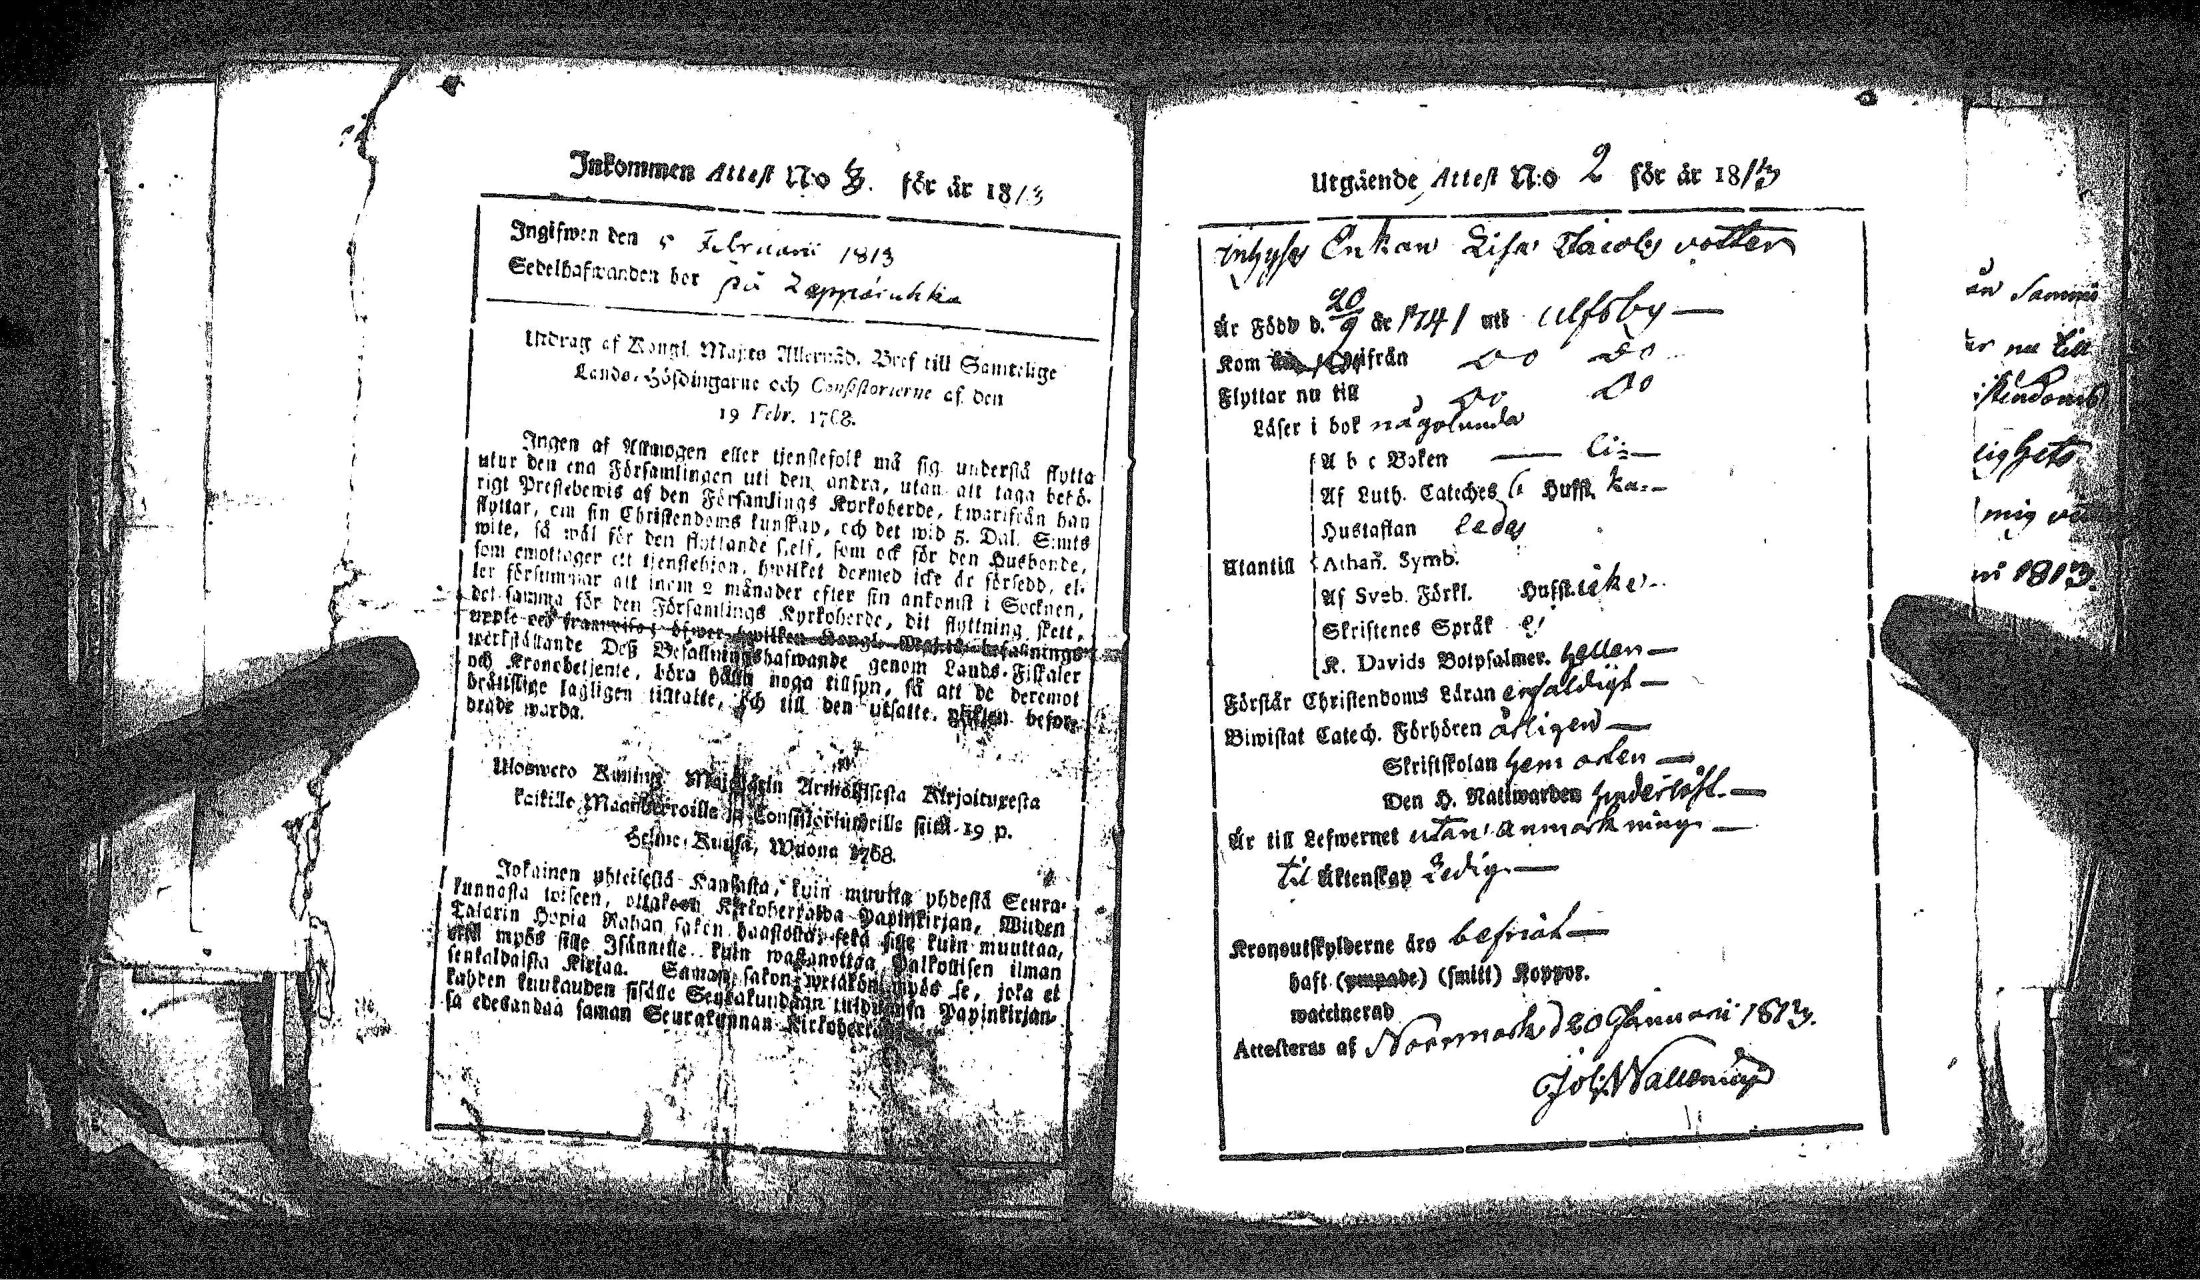 Inkommen Attest N:o 3. för år 1813
Ingifwen den 5 Februarii 1813
Sedelhafwanden bor på
Utdrag af Kongl. Maj:ts Allernåd. Bref till Samtelige
Lands-Höfdingarne och Consistorierne af den
19 Febr. 1768.
Ingen af Allmogen eller tjenstefolk må sig understå flytta
utur den ena Församlingen uti den andra, utan att taga behö-
rigt Prestebewis af den Församlings Kyrkoherde, hwarifrån han
flyttar, om sin Christendoms kunskap, och det wid 5. Dal. S:mts
wite, så wäl för den flyttande self, som ock för den Husbonde,
som emottager ett tjenstehion, hwilket dermed icke är försedd, el-
ler försummar att inom 2 månader efter sin ankomst i Socknen,
det samma för den Församlings Kyrkoherde, dit flyttning skett,
upte och framwisa; öfwer hwilken Kongl. Maj:ts befallnings
werkställande Deß Befallningshafwande genom Lands-Fiskaler
och Kronobetjente, böra hålla noga tillsyn, så att de deremot
bråttslige lagligen tilltalte, och till den utsatte plikten befor-
drade warda.
Uloswero Kuning: Majestätin Armollisesta Kirjoituxesta
kaikille Maanherroille ja Consistoriumeille siitä 19 p.
Helme-Kuusa, Wuona 1768.
Jokainen yhteisestä Kansasta, kuin muutta yhdestä Seura-
kunnasta toiseen, ottakoon Kirkoherralda Papinkirjan, Wiiden
Talarin Hopia Rahan sakon haastolla, sekä sille kuin muuttaa,
että myös sille Isännelle kuin wastanottaa Palkollisen ilman
senkaldaista Kirjaa. Saman sakon wetäkön myös se, joka ei
kahden kuukauden sisälle Seurakundaan tulduansa Papinkirjan-
sa edesandaa saman Seurakunnan Kirkoherralle
Utgående Attest N:o 2 för år 1813
inhyses Enkan Lisa Jacobs dotter
Är Född d. 20/9 år 1741 uti Ulfsby
Kom ifrån Do Do
Flyttar nu till Do Do
Läser i bok någolunda
A b c Boken
Af Luth. Cateches Hufst.
Hustaflan
Utantill Athan. Symb.
Af Sveb. Förkl. Hufst. icke
Skriftenes Språk ej
K. Davids Botpsalmer. hellen
Förstår Christendoms Läran enfaldigt
Biwistat Catech. Förhören årligen
Skriftskolan hem orten
Den H. Nattwarden
Är till Lefwernet utan anmärkning
til Äktenskap Ledig
Kronoutskylderne äro befriat
haft (ympade) (smitt) Koppor.
waccinerad
Attesteras af Norrmark d 20 Januarii 1813.
Joh: Wallenius